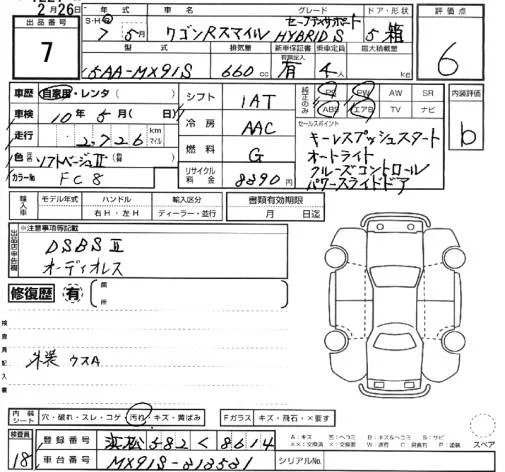 2月26日
出品番号
7
S・H・R 年式 車名 グレード ドア・形状
7年5月 ワゴンRスマイル セーフティサポート HYBRID S 5 箱
評価点
6
型式 排気量 新車保証書 乗車定員 最大積載量
5AA-MX91S 660cc 有 4人 kg
車歴 自家用・レンタ( )
シフト 1AT
純正のみ PS PW AW SR
ABS エアB TV ナビ
内装評価
b
車検 10年5月( 日)
走行 2,726 km マイル
冷房 AAC
セールスポイント
キーレスプッシュスタート
オートライト
クルーズコントロール
パワースライドドア
色 ソフトベージュⅡ
燃料 G
カラーNo FC8
リサイクル料金 8890円
輸入車 モデル年式 ハンドル 輸入区分 書類有効期限
右H・左H ディーラー・並行 月 日迄
出品店申告欄
※注意事項等記載
DSBSⅡ
オーディオレス
修復歴 有 箇所
検査員記入書
外装 ウスA
内装シート 穴・破れ・スレ・コゲ 汚れ・キズ・黄ばみ Fガラス キズ・飛石・×要す
検査員
18
登録番号 浜松582く8614
車台番号 MX91S-212521
シリアルNo.
スペア